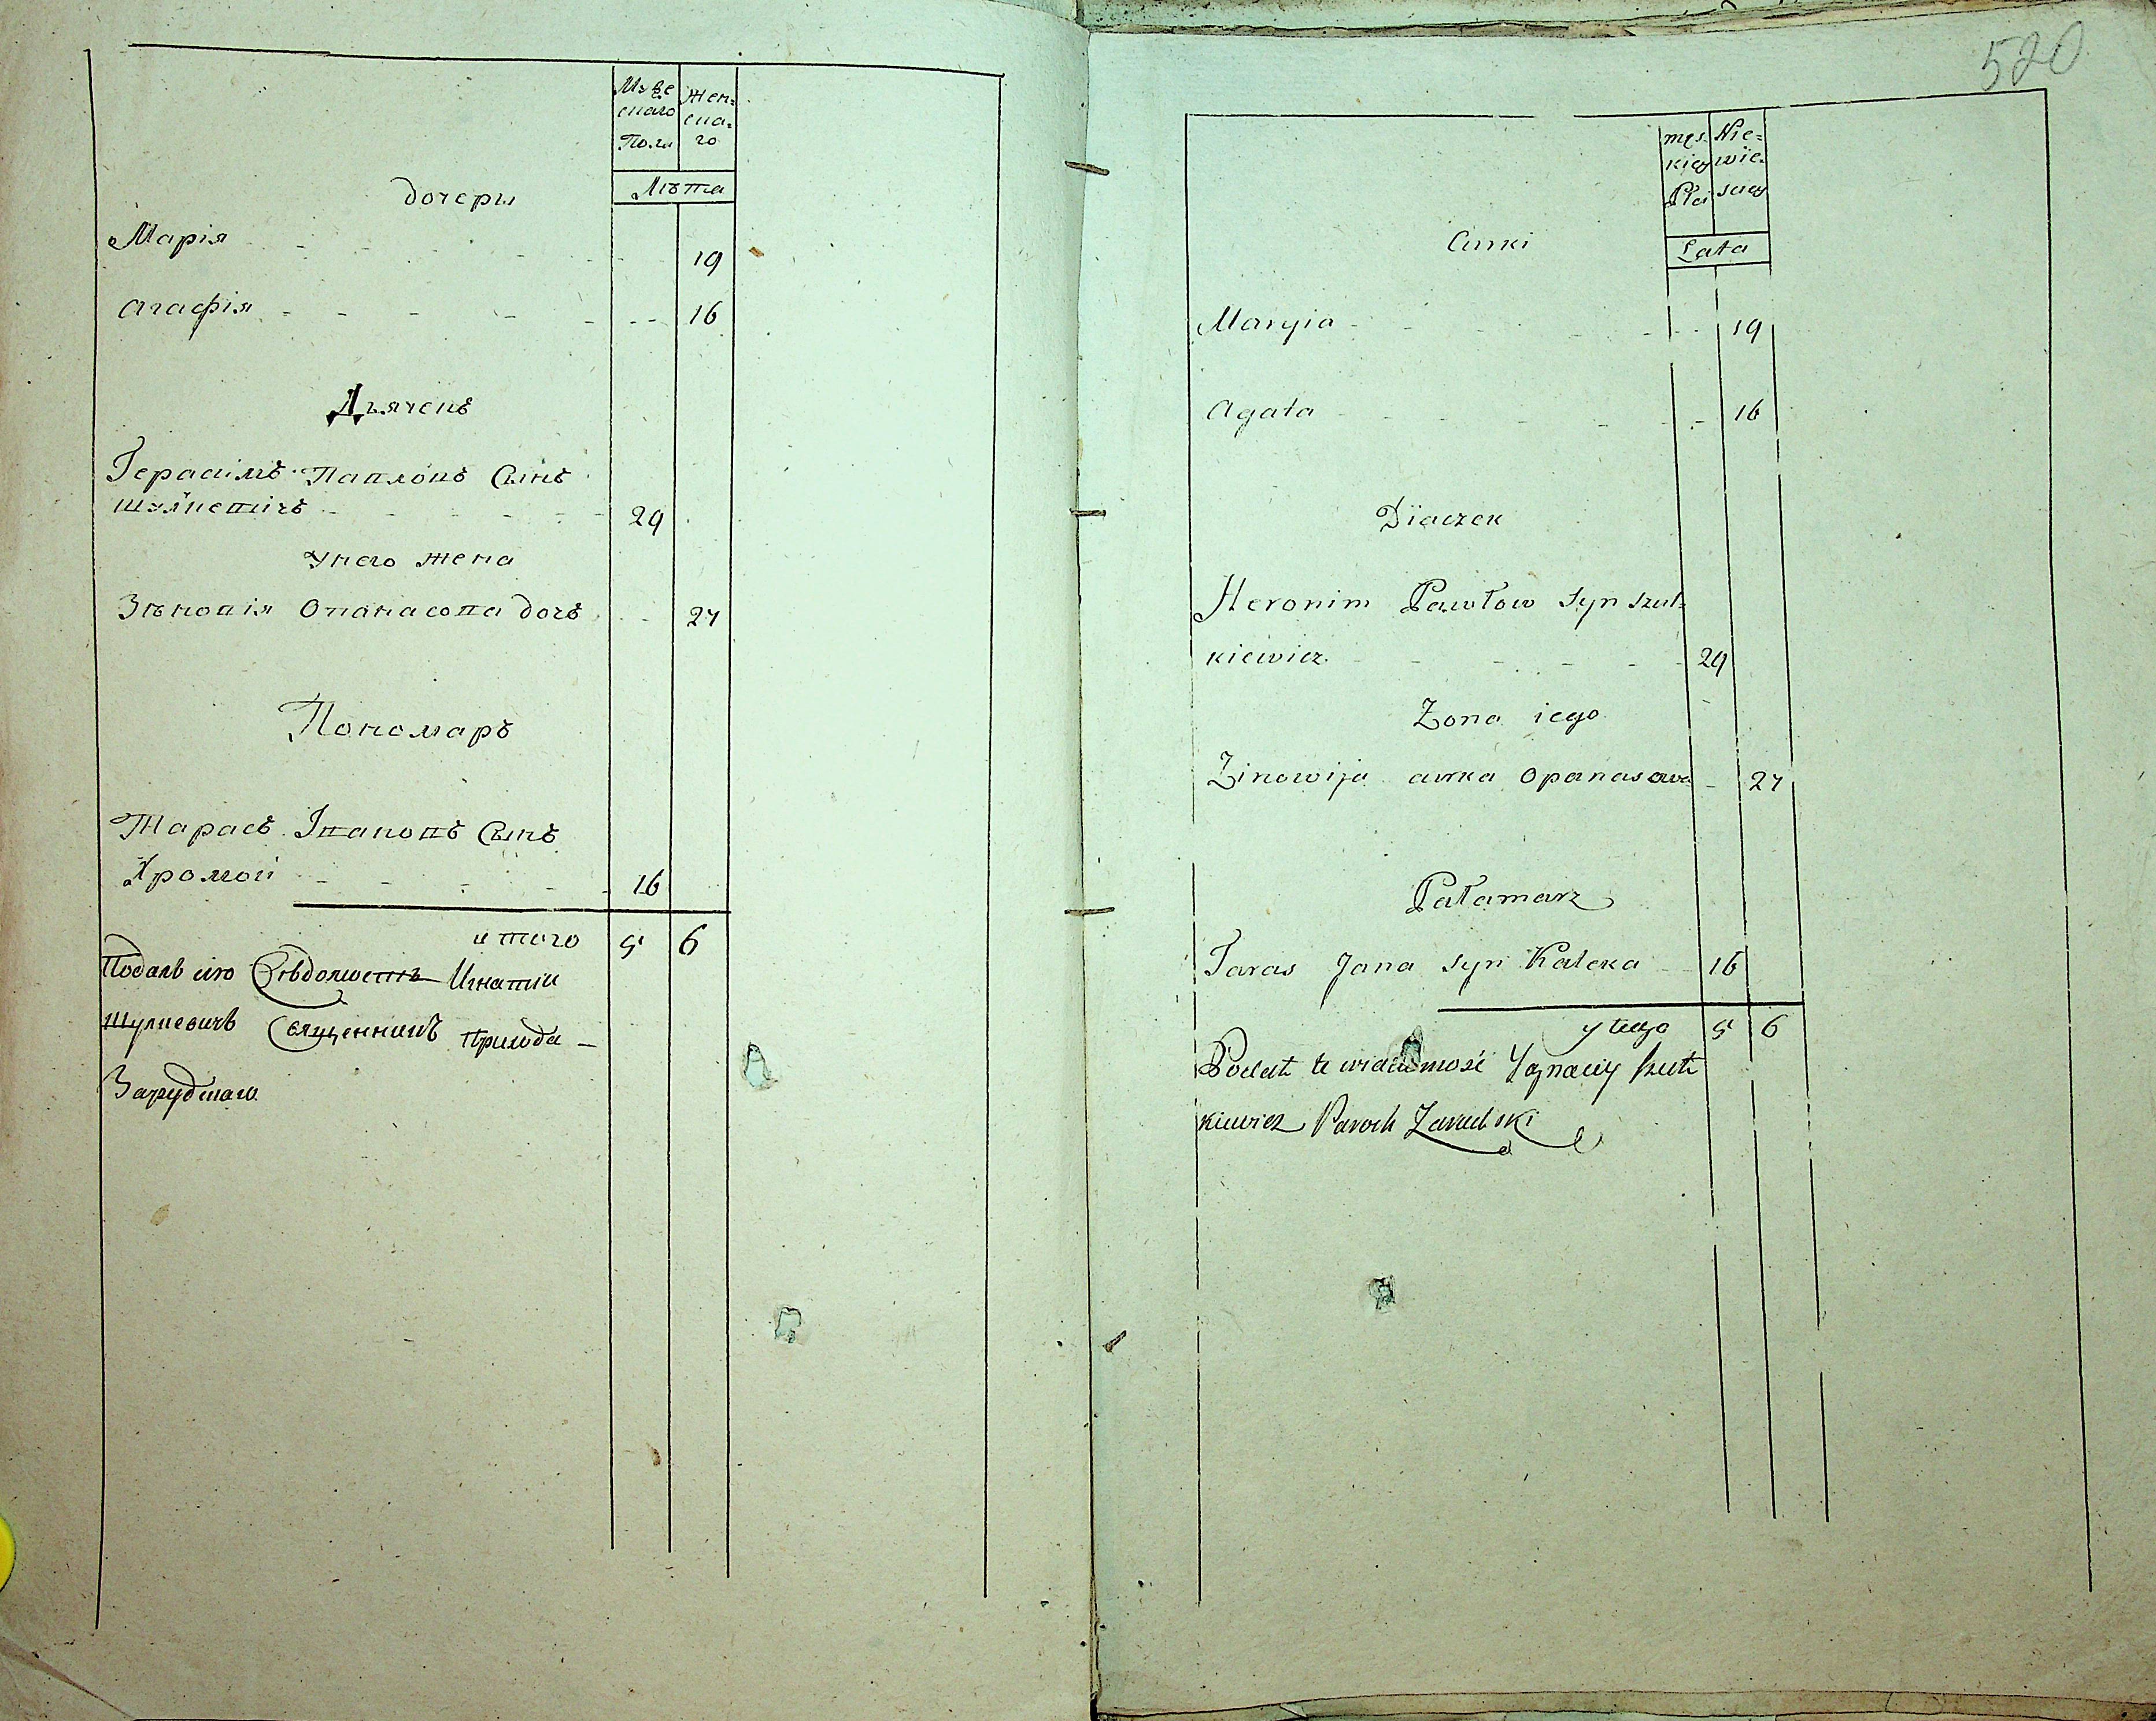 Муже
скаго
Пола
Жен=
ска=
го
Лѣта
дочеры
Марія 19
Агафія 16
Дьячекъ
Герасимъ Павловъ Сынъ
Шулкевичъ 29
Унего жена
Зѣновія Опанасова дочь 27
Пономаръ
Тарасъ Івановъ Сынъ
Хромой 16
итого 5 6
Подалъ сию Свѣдомость Игнатій
Шулкевичъ Священникъ Прихода
Зарудскаго
520
męs=
kiey
Płci
Nie=
wie=
sciey
Lata
Curki
Maryia 19
Agata 16
Diaczek
Heronim Pawłow Syn Szul=
kiewicz 29
Zona iego
Zinowija curka Opanasowa 27
Pałamarz
Taras Jana Syn Kaleka 16
y tego 5 6
Podał te wiadomość Ygnacy Szul
kiewicz Paroch Zarudski